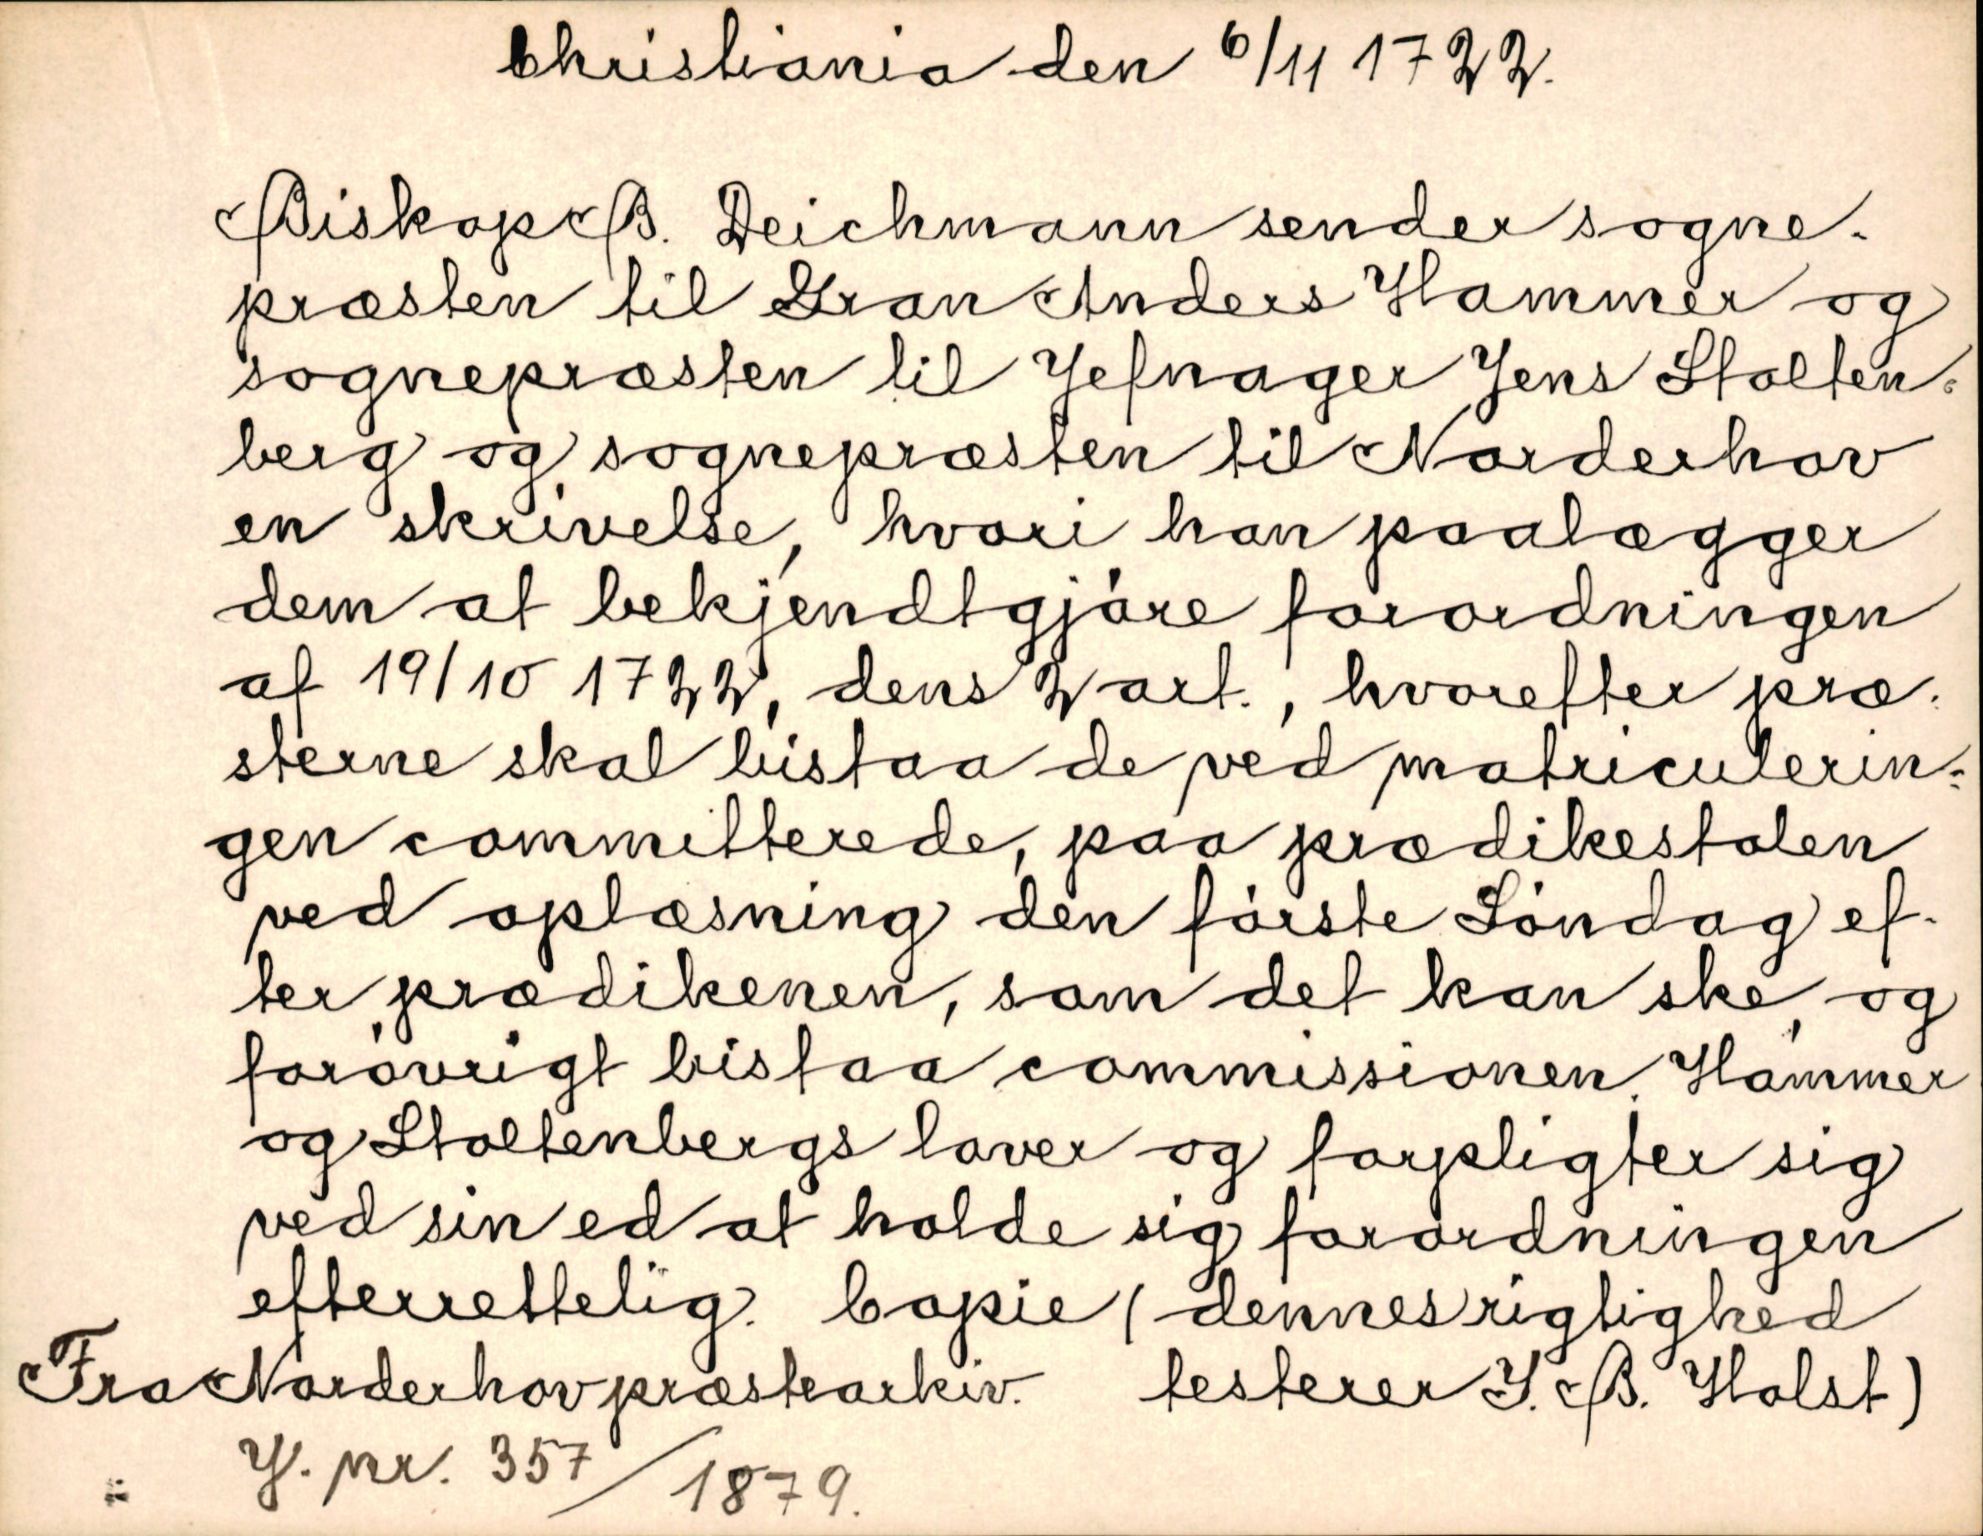 Christiania den 6/11 1722.
Biskop B. Deichmann sender sogne-
præsten til Gran Anders Hammer og
sognepræsten til Jefnager Jens Stolten-
berg og sognepræsten til Norderhov
en skrivelse, hvori han paalægger
dem at bekjendtgjøre forordningen
af 19/10 1722, dens 2 art., hvorefter præ-
sterne skal bistaa de ved matriculerin-
gen committerede, paa prædikestolen
ved oplæsning den første Søndag ef-
ter prædikenen, som det kan ske, og
forøvrigt bistaa commissionen. Hammer
og Stoltenbergs lover og forpligter sig
ved sin ed at holde sig forordningen
efterrettelig. Copie (dennes rigtighed
Fra Norderhov præstearkiv. testerer J. B. Holst)
J. nr. 357/1879.